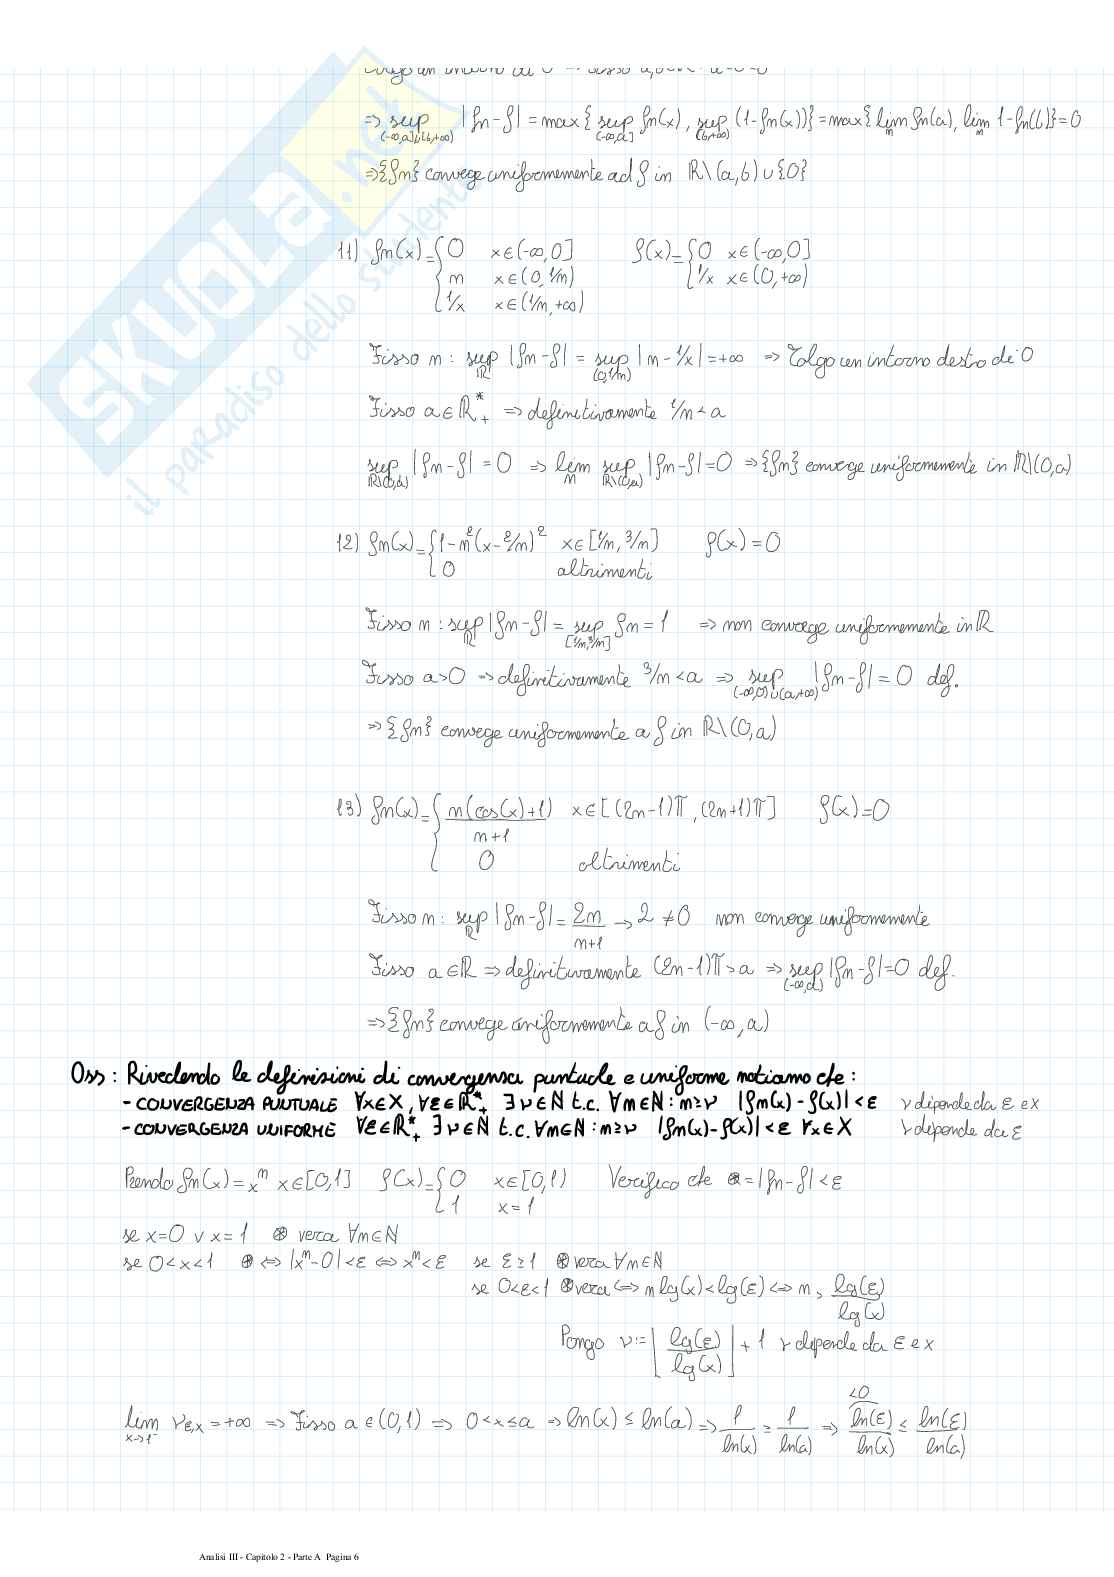 ⇒ sup |fn-f| = max{ sup fn(x), sup (1-fn(x))} = max{lim fn(a), lim 1-fn(b)} = 0
(-∞,a]∪(b,+∞) (-∞,a] (b,+∞) n n
⇒{fn} convege uniformemente ad f in ℝ\(a,b)∪{0}
11) fn(x)={0 x∈(-∞,0] f(x)={0 x∈(-∞,0]
n x∈(0,1/n) 1/x x∈(0,+∞)
1/x x∈(1/n,+∞)
Fisso n: sup |fn-f| = sup |n-1/x| = +∞ ⇒ Tolgo un intorno destro di 0
ℝ (0,1/n)
Fisso a∈ℝ*+ ⇒ definitivamente 1/n < a
sup |fn-f| = 0 ⇒ lim sup |fn-f| = 0 ⇒ {fn} converge uniformemente in ℝ\(0,a)
ℝ\(0,a) n ℝ\(0,a)
12) fn(x)={1-n²(x-2/n)² x∈[1/n,3/n] f(x)=0
0 altrimenti
Fisso n: sup |fn-f| = sup fn = 1 ⇒ non converge uniformemente in ℝ
ℝ [1/n,3/n]
Fisso a>0 ⇒ definitivamente 3/n < a ⇒ sup |fn-f| = 0 def.
(-∞,0)∪(a,+∞)
⇒ {fn} convege uniformemente a f in ℝ\(0,a)
13) fn(x)={n(cos(x)+1) x∈[(2n-1)π,(2n+1)π] f(x)=0
n+1
0 altrimenti
Fisso n: sup |fn-f| = 2n → 2 ≠ 0 non converge uniformemente
ℝ n+1
Fisso a∈ℝ ⇒ definitivamente (2n-1)π > a ⇒ sup |fn-f| = 0 def.
(-∞,a)
⇒ {fn} convege uniformemente a f in (-∞,a)
Oss: Rivedendo le definizioni di convergenza puntuale e uniforme notiamo che:
- CONVERGENZA PUNTUALE ∀x∈X, ∀ε∈ℝ*+ ∃ν∈ℕ t.c. ∀n∈ℕ: n≥ν |fn(x)-f(x)|<ε ν dipende da ε e x
- CONVERGENZA UNIFORME ∀ε∈ℝ*+ ∃ν∈ℕ t.c. ∀n∈ℕ: n≥ν |fn(x)-f(x)|<ε ∀x∈X ν dipende da ε
Prendo fn(x)=xⁿ x∈[0,1] f(x)={0 x∈[0,1) Verifico che ⊛=|fn-f|<ε
1 x=1
se x=0 ∨ x=1 ⊛ vera ∀n∈ℕ
se 0<x<1 ⊛⇔|xⁿ-0|<ε⇔xⁿ<ε se ε≥1 ⊛ vera ∀n∈ℕ
se 0<ε<1 ⊛ vera ⇔ n lg(x)<lg(ε)⇔n> lg(ε)
lg(x)
Pongo ν:=⌊lg(ε)/lg(x)⌋+1 ν dipende da ε e x
<0
lim νε,x=+∞ ⇒ Fisso a∈(0,1) ⇒ 0<x≤a ⇒ ln(x)≤ln(a) ⇒ 1/ln(x) ≥ 1/ln(a) ⇒ ln(ε)/ln(x) ≤ ln(ε)/ln(a)
x→1⁻
SKUOLA.net
il paradiso dello studente
Analisi III - Capitolo 2 - Parte A Pagina 6